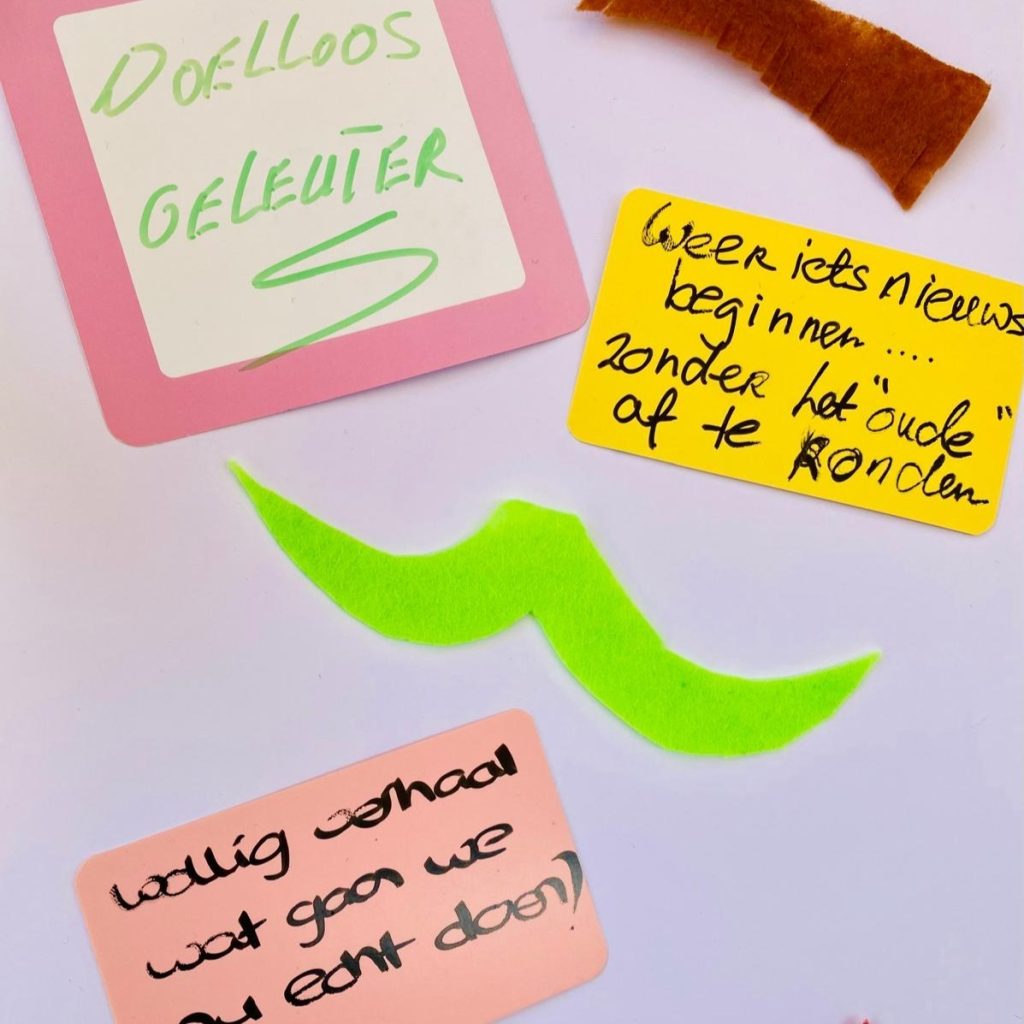 DOELLOOS
GELEUTER
Weer iets nieuws
beginnen ....
zonder het "oude"
af te ronden
wollig verhaal
wat gaan we
nu echt doen)